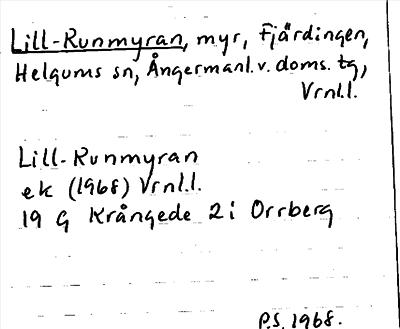 Lill-Runmyran, myr, Fjärdingen,
Helgums sn, Ångermanl.v. doms. tg,
Vrnl.l.
Lill-Runmyran
ek (1968) Vrnl.l.
19 G Krångede 2 i Orrberg
P.S. 1968.